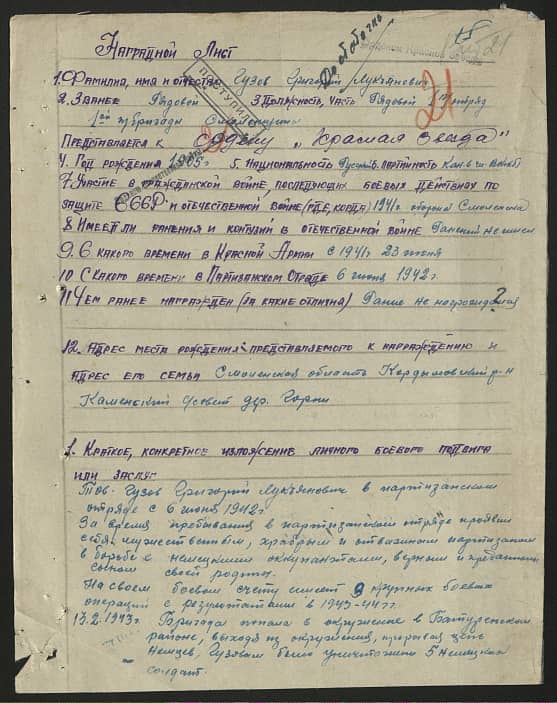 Наградной Лист
21
1. Фамилия, имя и отчество Гузов Григорий Лукьянович
2. Звание Рядовой 3. Должность, часть Рядовой 1й отряд
1ой п/бригады Смоленщины
Представляется к Ордену „Красная Звезда"
4. Год рождения 1905г 5. Национальность Русский 6. Партийность Кан. в чл. ВКП(б)
7. Участие в гражданской войне, последующих боевых действиях по
защите СССР и отечественной войне (где, когда) 1941г. оборона Смоленска
8 Имеет ли ранения и контузии в отечественной войне Ранений не имел
9. С какого времени в Красной Армии с 1941г. 23 июня
10 С какого времени в Партизанском Отряде 6 июня 1942г.
11 Чем ранее награжден (за какие отличия) Ранее не награждался
12. Адрес места рождения представляемого к награждению и
адрес его семьи Смоленская область Кардымовский р-н
Каменский с/совет дер. Горки
1. Краткое, конкретное изложение личного боевого подвига
или заслуг
Тов. Гузов Григорий Лукьянович в партизанском
отряде с 6 июня 1942г.
За время пребывания в партизанском отряде проявил
себя мужественным, храбрым и отважным партизаном
в борьбе с немецкими оккупантами, верным и преданным
сыном своей родины.
На своем боевом счету имеет 9 крупных боевых
операций с результатами в 1943-44гг.
13.2.1943г. Бригада попала в окружение в Батуринском
районе, выходя из окружения, прорвав цепь
немцев, Гузовым было уничтожено 5 немецких
солдат.